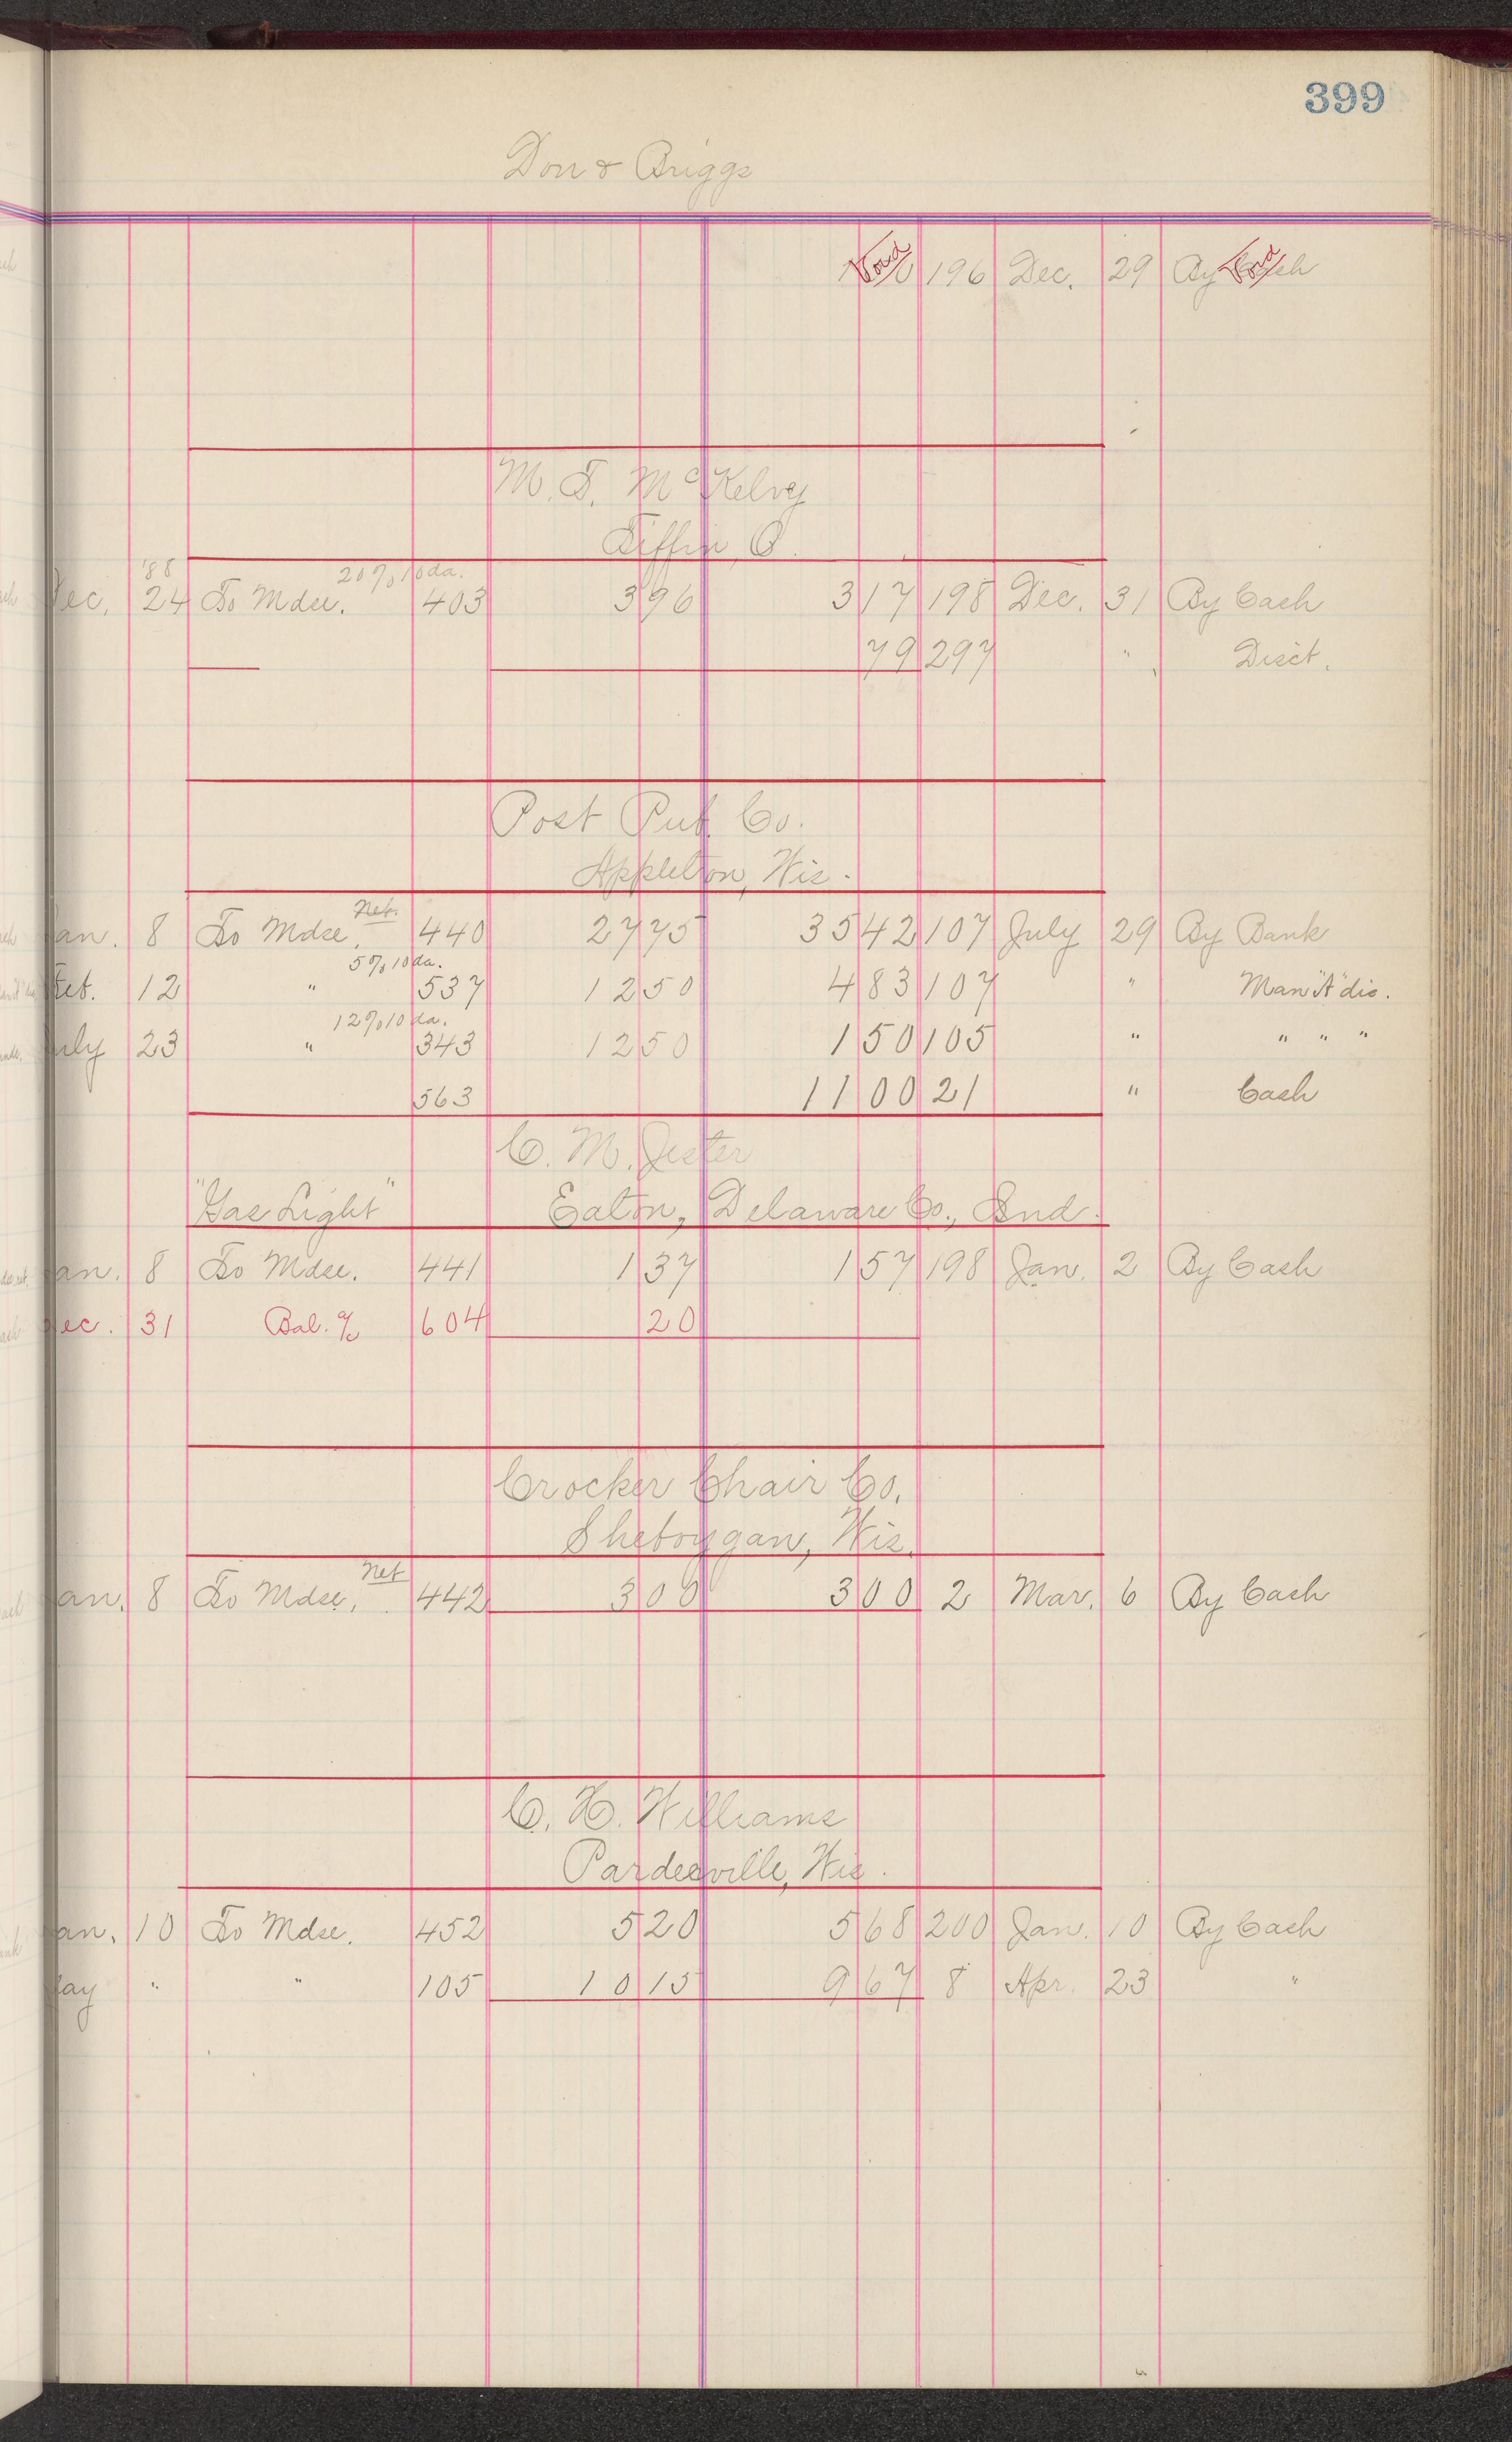 399
Don & Briggs
Void 196 Dec. 29 By Cash Void
M. T. McKelvy
Tiffin, O.
'88 20% 10 da.
Dec. 24 To Mdse. 403 3 96 3 17 198 Dec. 31 By Cash
79 297 " Disct.
Post Pub. Co.
Appleton, Wis.
Net.
Jan. 8 To Mdse. 440 27 75 35 42 107 July 29 By Bank
5% 10 da.
Feb. 12 " 537 12 50 4 83 107 " Man "A" dis.
12% 10 da.
July 23 " 343 12 50 1 50 105 " " " "
563 11 00 21 " Cash
C. M. Jester
"Gas Light" Eaton, Delaware Co., Ind.
Jan. 8 To Mdse. 441 1 37 1 57 198 Jan. 2 By Cash
Dec. 31 Bal. % 604 20
Crocker Chair Co.
Sheboygan, Wis.
Net
Jan. 8 To Mdse. 442 3 00 3 00 2 Mar. 6 By Cash
C. H. Williams
Pardeeville, Wis.
Jan. 10 To Mdse. 452 5 20 5 68 200 Jan. 10 By Cash
May " " 105 10 15 9 67 8 Apr. 23 "